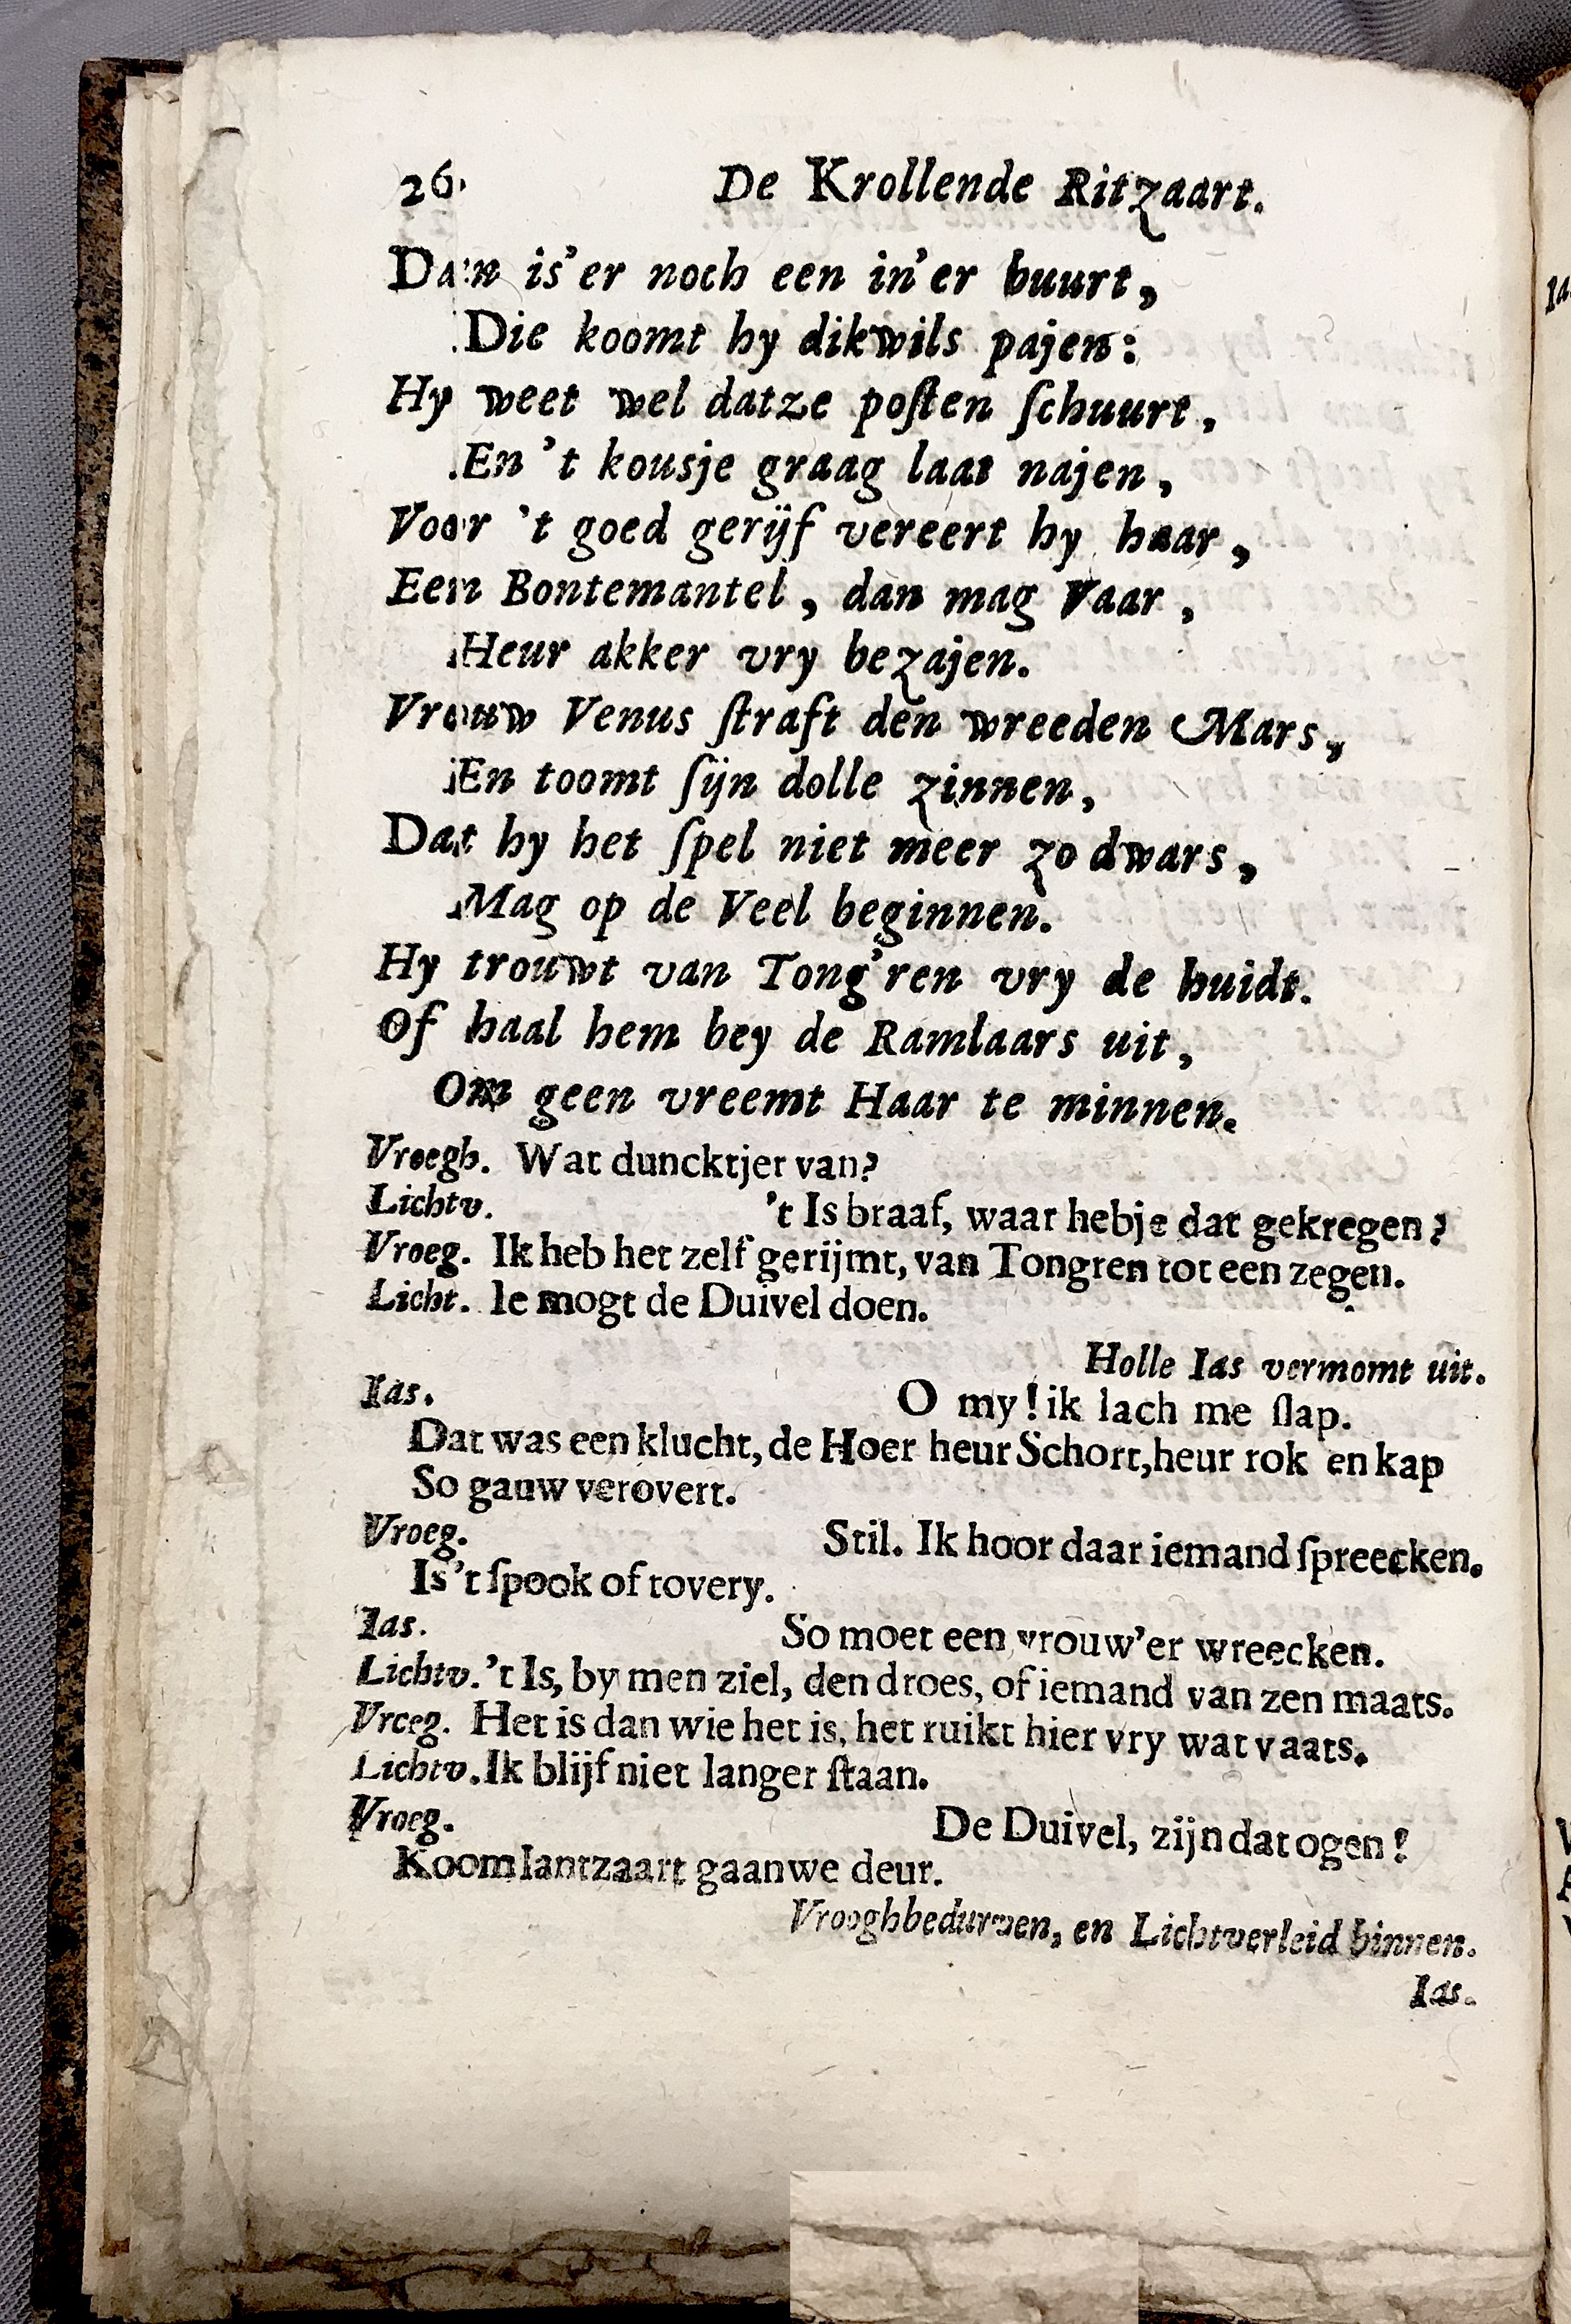 26. De Krollende Ritzaart.
Da'n is'er noch een in'er buurt,
Die koomt hy dikwils pajen:
Hy weet wel datze poſten ſchuurt,
En 't kousje graag laat najen,
Voor 't goed gerijf vereert hy haar,
Een Bontemantel, dan mag Vaar,
Heur akker vry bezajen.
Vrouw Venus ſtraft den wreeden Mars,
En toomt ſijn dolle zinnen,
Dat hy het ſpel niet meer zo dwars,
Mag op de Veel beginnen.
Hy trouwt van Tong'ren vry de huidt.
Of haal hem bey de Ramlaars uit,
Om geen vreemt Haar te minnen.
Vroegh. Wat duncktjer van?
Lichtv. 't Is braaf, waar hebje dat gekregen?
Vroeg. Ik heb het zelf gerijmt, van Tongren tot een zegen.
Licht. Ie mogt de Duivel doen.
Holle Ias vermomt uit.
Ias. O my! ik lach me ſlap.
Dat was een klucht, de Hoer heur Schort, heur rok en kap
So gauw verovert.
Vroeg. Stil. Ik hoor daar iemand ſpreecken.
Is 't ſpook of tovery.
Ias. So moet een vrouw'er wreecken.
Lichtv. 't Is, by men ziel, den droes, of iemand van zen maats.
Vroeg. Het is dan wie het is, het ruikt hier vry wat vaats.
Lichtv. Ik blijf niet langer ſtaan.
Vroeg. De Duivel, zijn dat ogen!
Koom lantzaart gaan we deur.
Vrooghbedurven, en Lichtverleid binnen.
Ias.